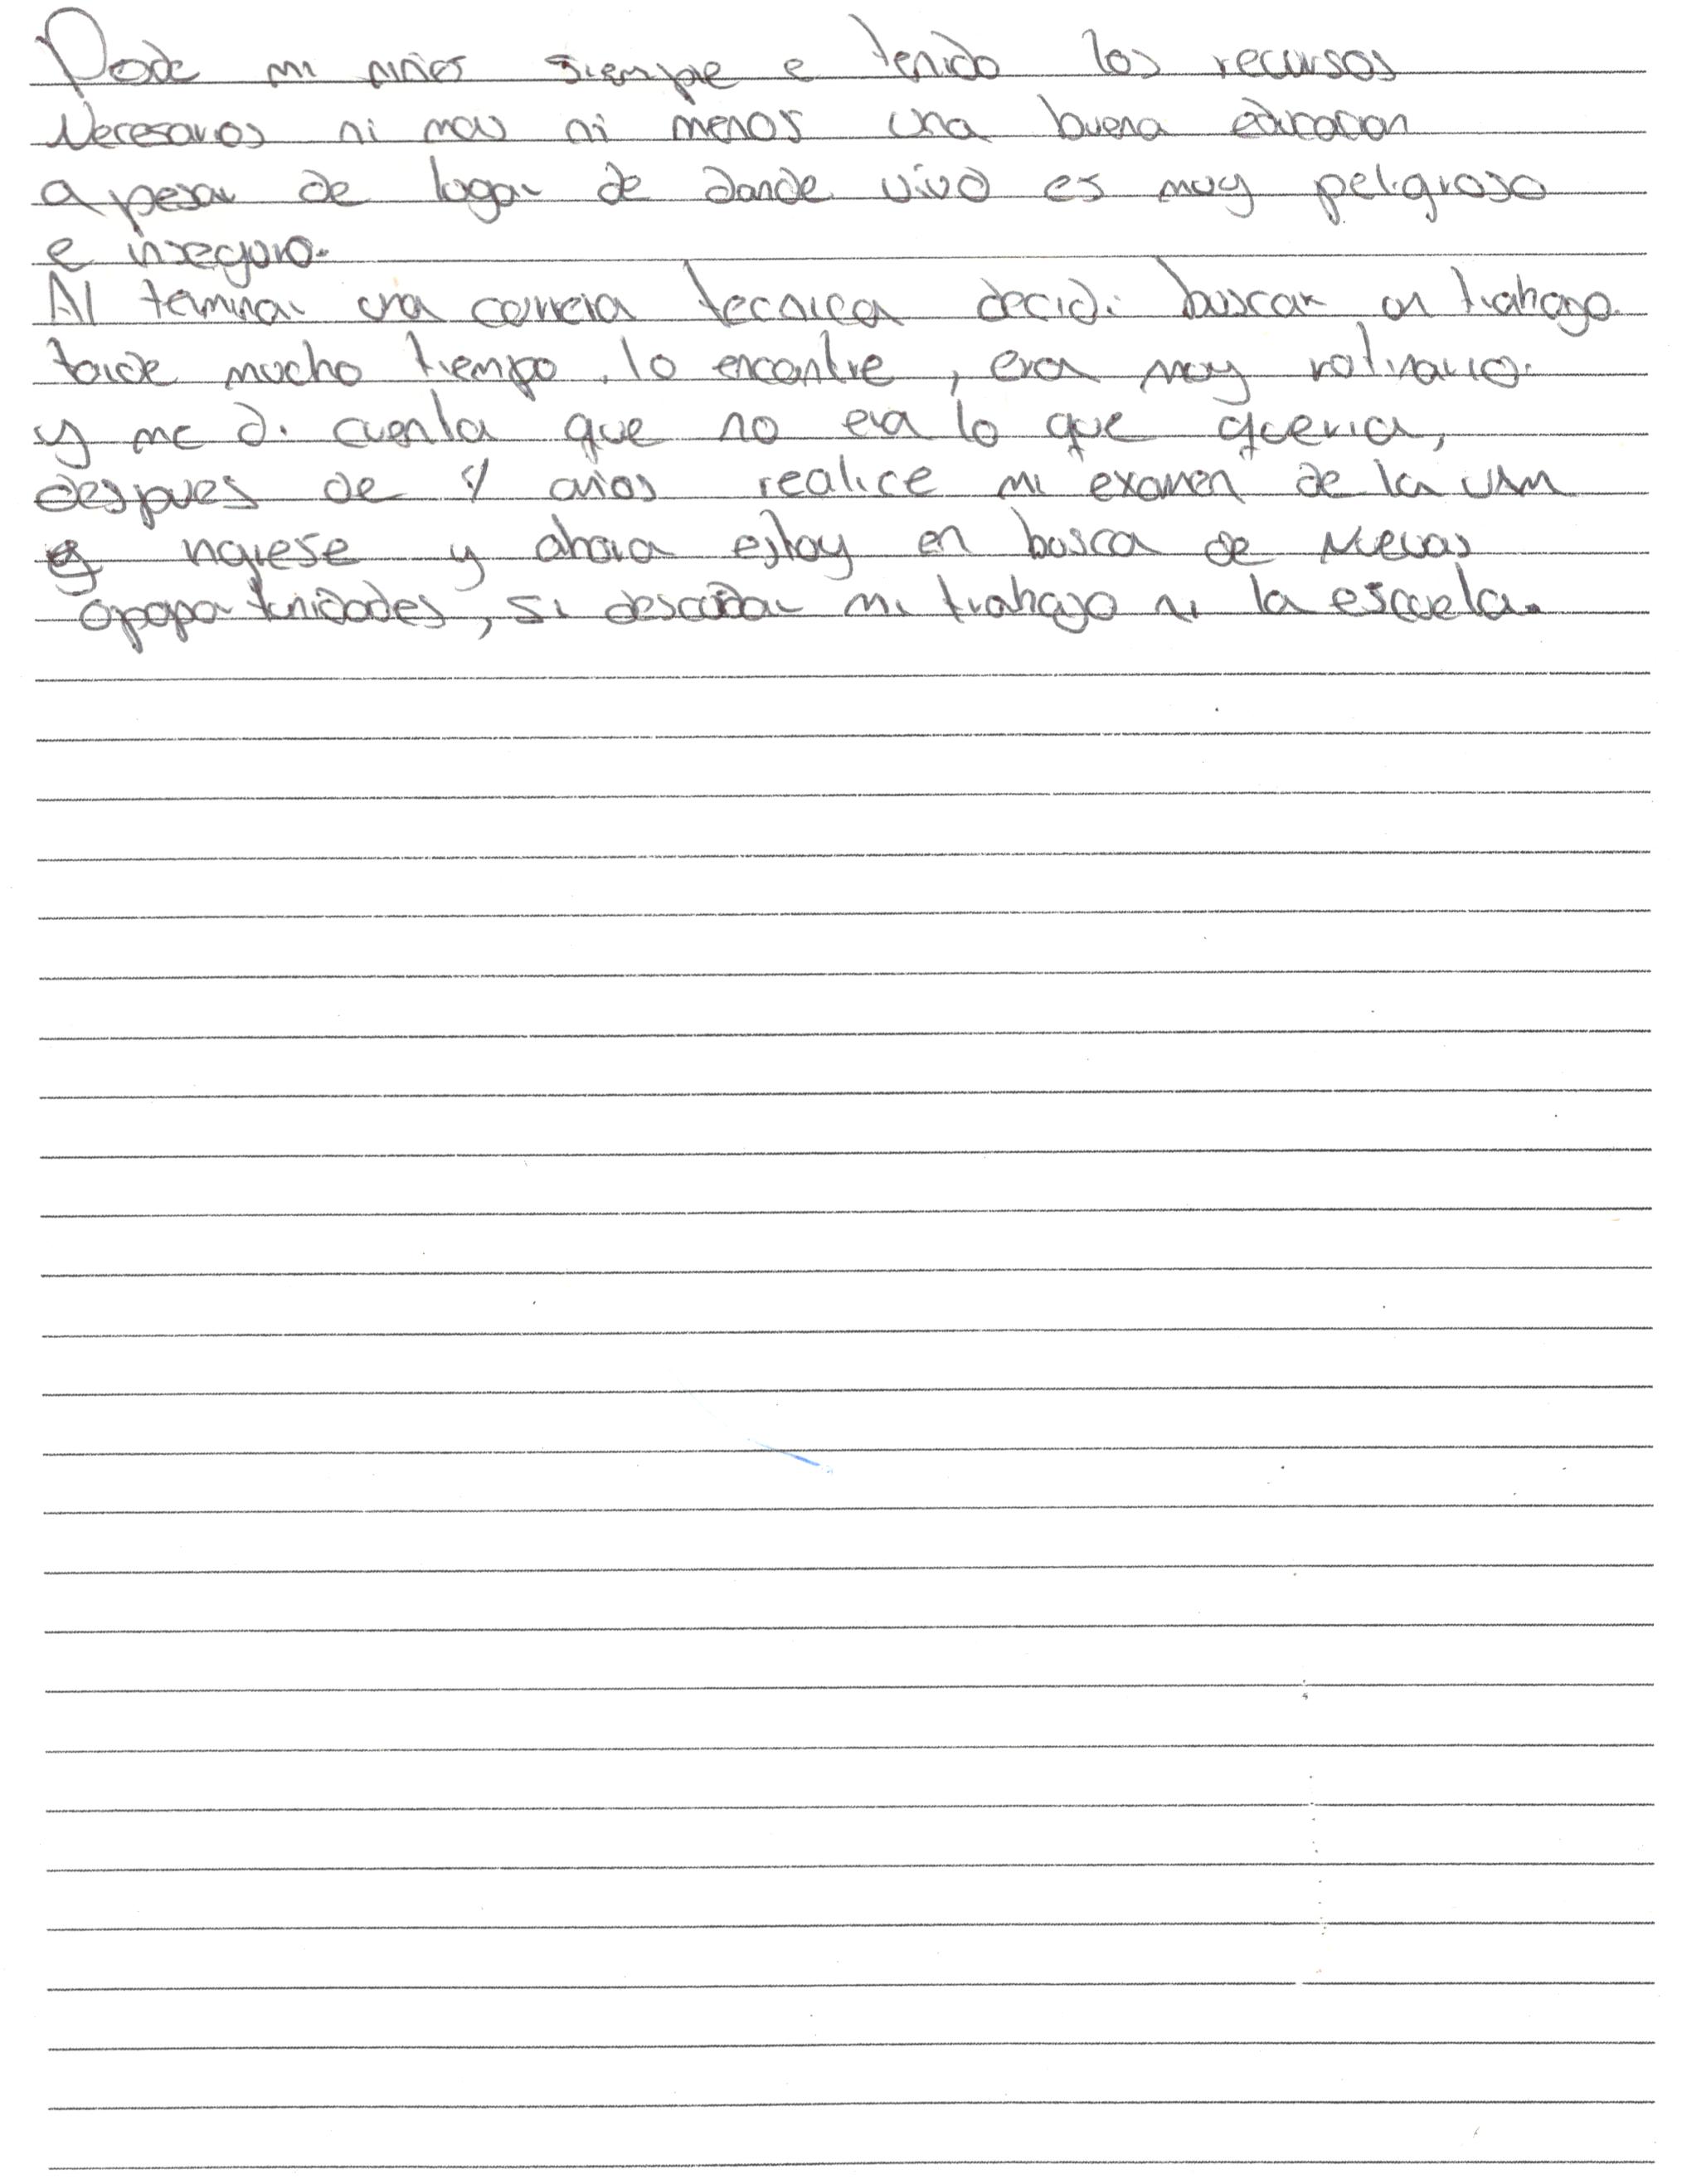 Dede mi niñes siempre e tenido los recursos
Necesarios ni mas ni menos una buena educacion
a pesar de lugar de donde vivo es muy peligroso
e inseguro.
Al terminar una carrera tecnica decidi buscar un trabajo
tarde mucho tiempo, lo encontre, era muy rutinario.
y me di cuenta que no era lo que queria,
despues de 4 años realice mi examen de la UAM
ngrese y ahora estoy en busca de Nuevas
opopor tunidades, si descuidar mi trabajo ni la escuela.